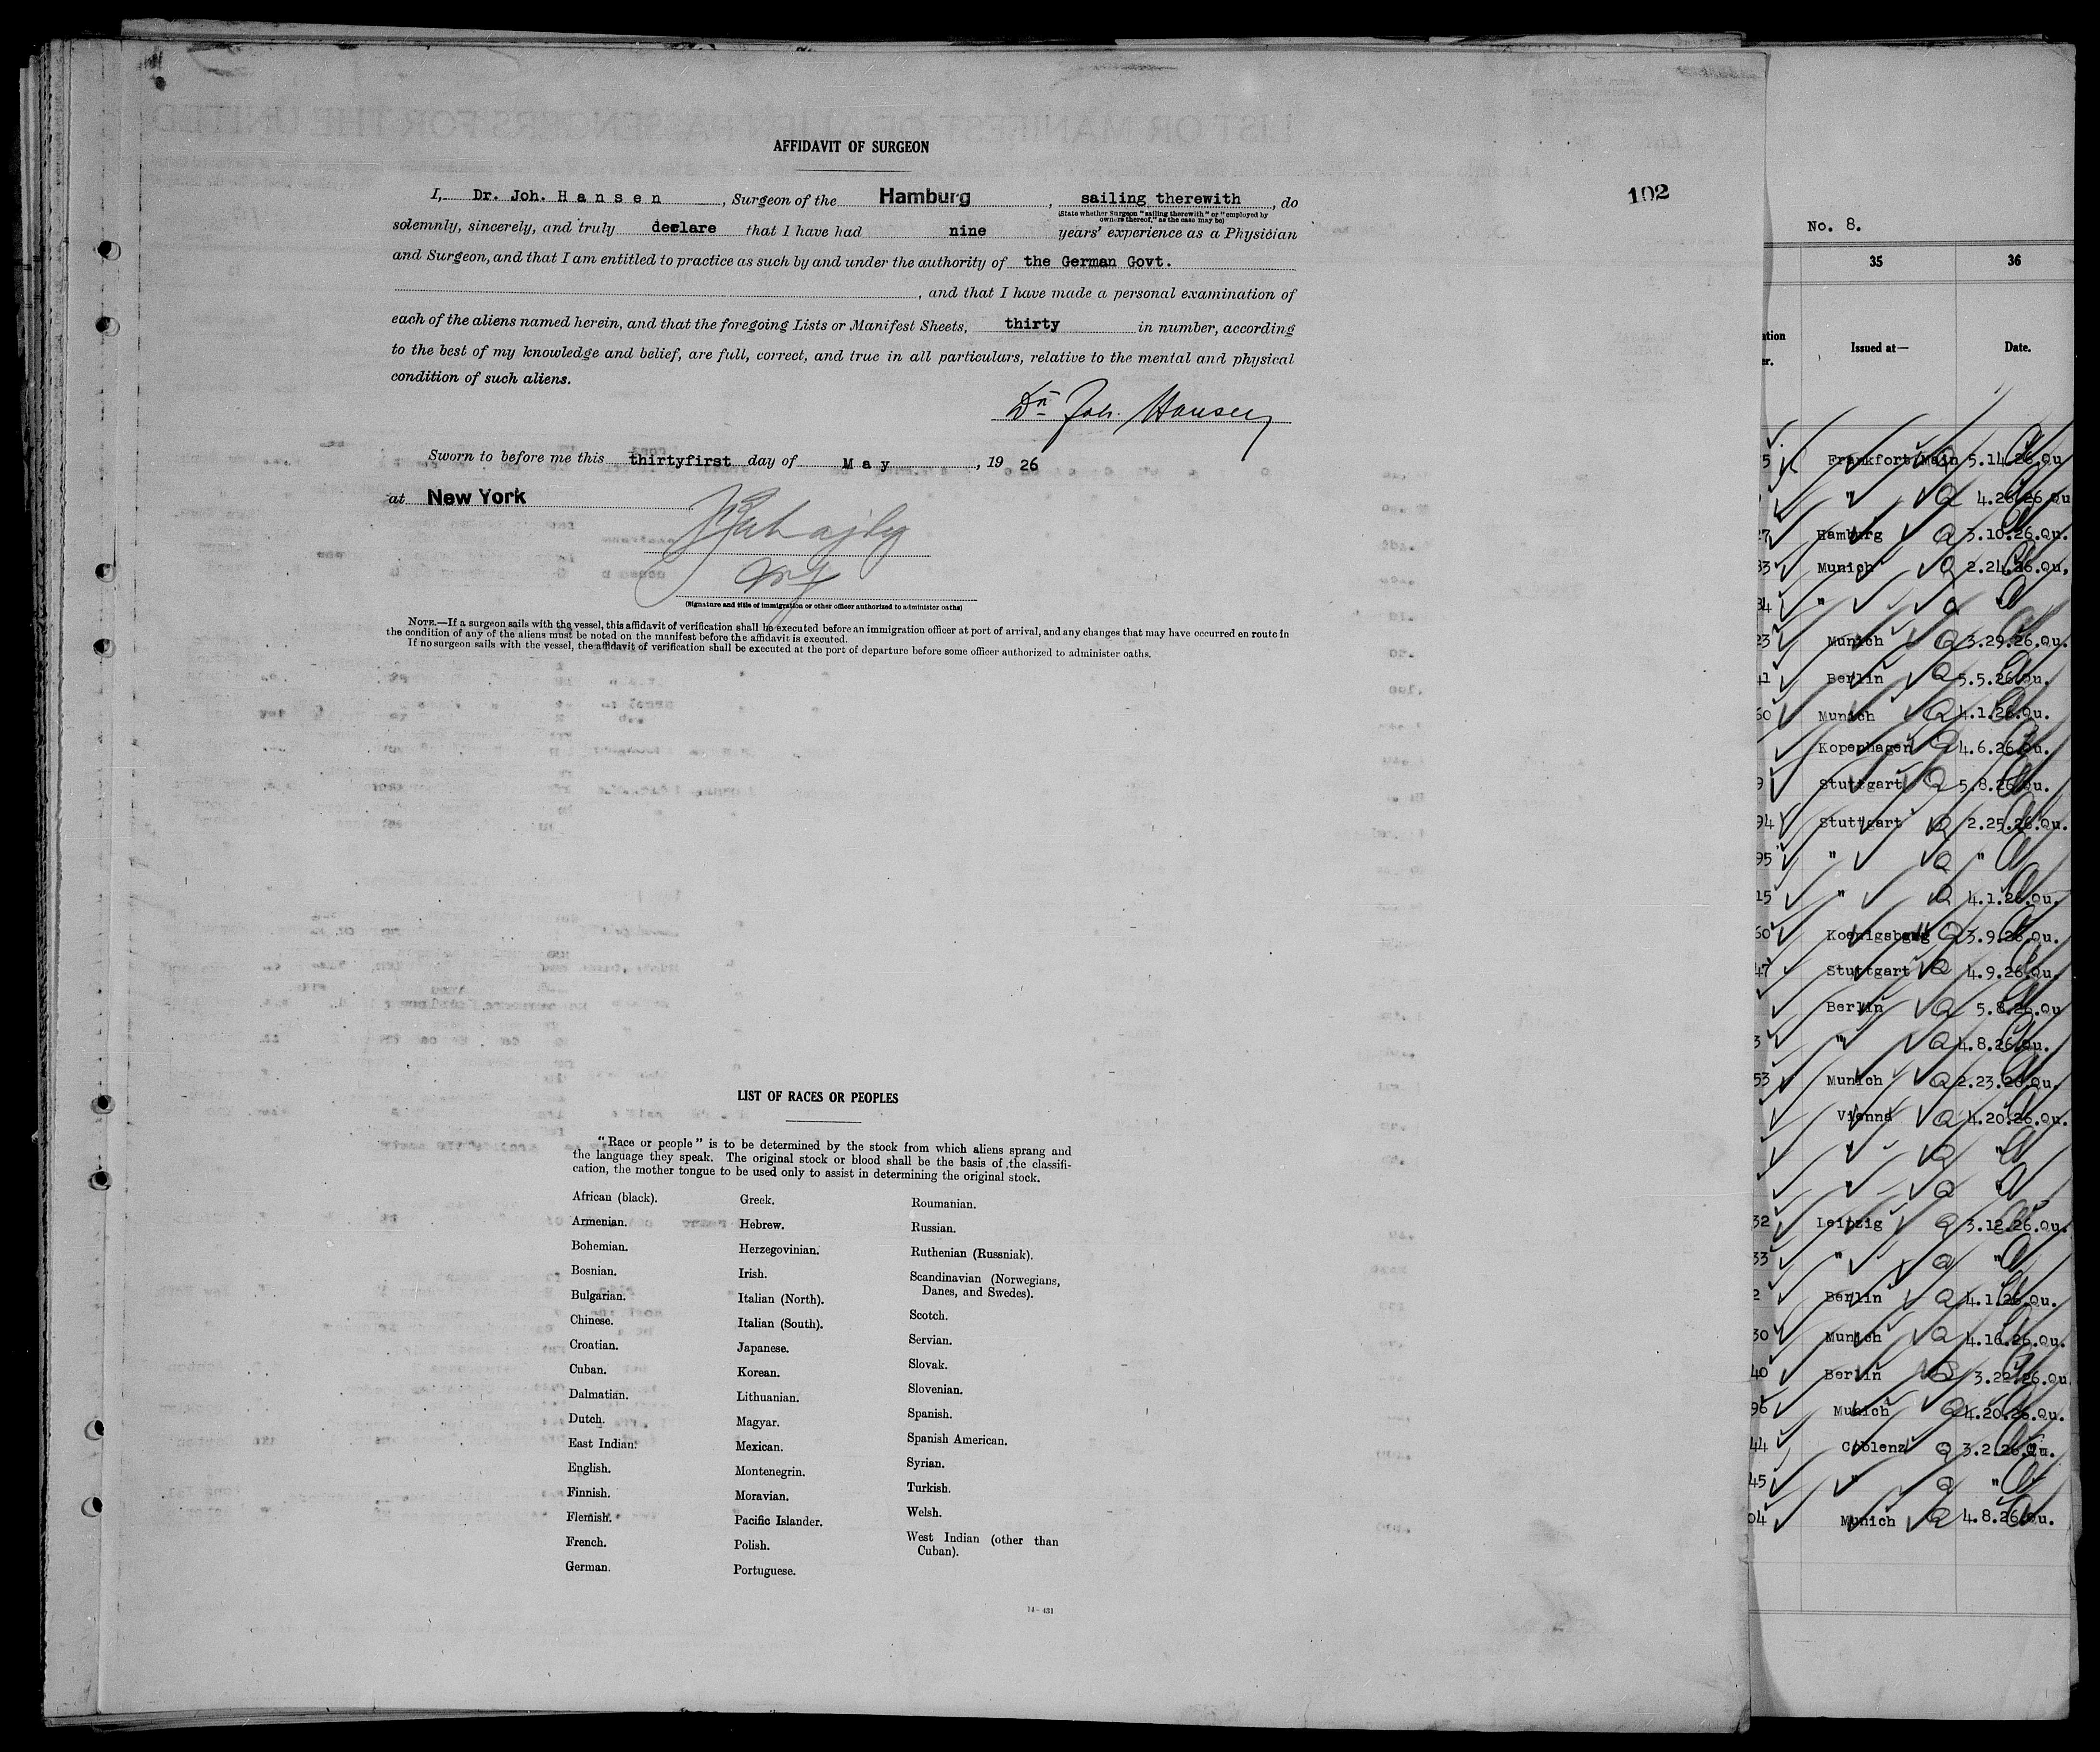 AFFIDAVIT OF SURGEON
102
I, Dr. Joh. H a n s e n, Surgeon of the Hamburg, sailing therewith, do
(State whether Surgeon "sailing therewith" or "employed by
owners thereof," as the case may be)
solemnly, sincerely, and truly declare that I have had nine years' experience as a Physician
and Surgeon, and that I am entitled to practice as such by and under the authority of the German Govt.
, and that I have made a personal examination of
each of the aliens named herein, and that the foregoing Lists or Manifest Sheets, thirty in number, according
to the best of my knowledge and belief, are full, correct, and true in all particulars, relative to the mental and physical
condition of such aliens.
Dr. Joh. Hansen
Sworn to before me this thirtyfirst day of M a y, 19 26
at New York
(Signature and title of immigration or other officer authorized to administer oaths)
NOTE.—If a surgeon sails with the vessel, this affidavit of verification shall be executed before an immigration officer at port of arrival, and any changes that may have occurred en route in
the condition of any of the aliens must be noted on the manifest before the affidavit is executed.
If no surgeon sails with the vessel, the affidavit of verification shall be executed at the port of departure before some officer authorized to administer oaths.
LIST OF RACES OR PEOPLES
"Race or people" is to be determined by the stock from which aliens sprang and
the language they speak. The original stock or blood shall be the basis of the classifi-
cation, the mother tongue to be used only to assist in determining the original stock.
African (black).
Armenian.
Bohemian.
Bosnian.
Bulgarian.
Chinese.
Croatian.
Cuban.
Dalmatian.
Dutch.
East Indian.
English.
Finnish.
Flemish.
French.
German.
Greek.
Hebrew.
Herzegovinian.
Irish.
Italian (North).
Italian (South).
Japanese.
Korean.
Lithuanian.
Magyar.
Mexican.
Montenegrin.
Moravian.
Pacific Islander.
Polish.
Portuguese.
Roumanian.
Russian.
Ruthenian (Russniak).
Scandinavian (Norwegians,
Danes, and Swedes).
Scotch.
Servian.
Slovak.
Slovenian.
Spanish.
Spanish American.
Syrian.
Turkish.
Welsh.
West Indian (other than
Cuban).
14-431
No. 8.
35 36
Issued at— Date.
Frankfort/Main 5.14.26.Qu
" 4.26.26 Qu
Hamburg 3.10.26.Qu.
Munich 2.24.26.Qu,
" "
Munich 3.29.26.Qu.
Berlin 5.5.26.Qu.
Munich 4.1.26.Qu.
Kopenhagen 4.6.26.Qu.
Stuttgart 5.8.26.Qu.
Stuttgart 2.25.26.Qu.
" "
" 4.1.26.Qu.
Koenigsberg 3.9.26.Qu.
Stuttgart 4.9.26.Qu.
Berlin 5.8.26.Qu
" 4.8.26.Qu.
Munich 2.23.26.Qu.
Vienna 4.20.26.Qu.
" "
" "
Leipzig 3.12.26.Qu.
" "
Berlin 4.1.26.Qu.
Munich 4.16.26.Qu.
Berlin 3.22.26.Qu
Munich 4.20.26.Qu.
Coblenz 3.2.26.Qu.
" "
Munich 4.8.26.Qu.